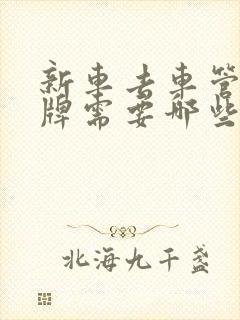 新車去車管
牌需要那些
北海九千盞